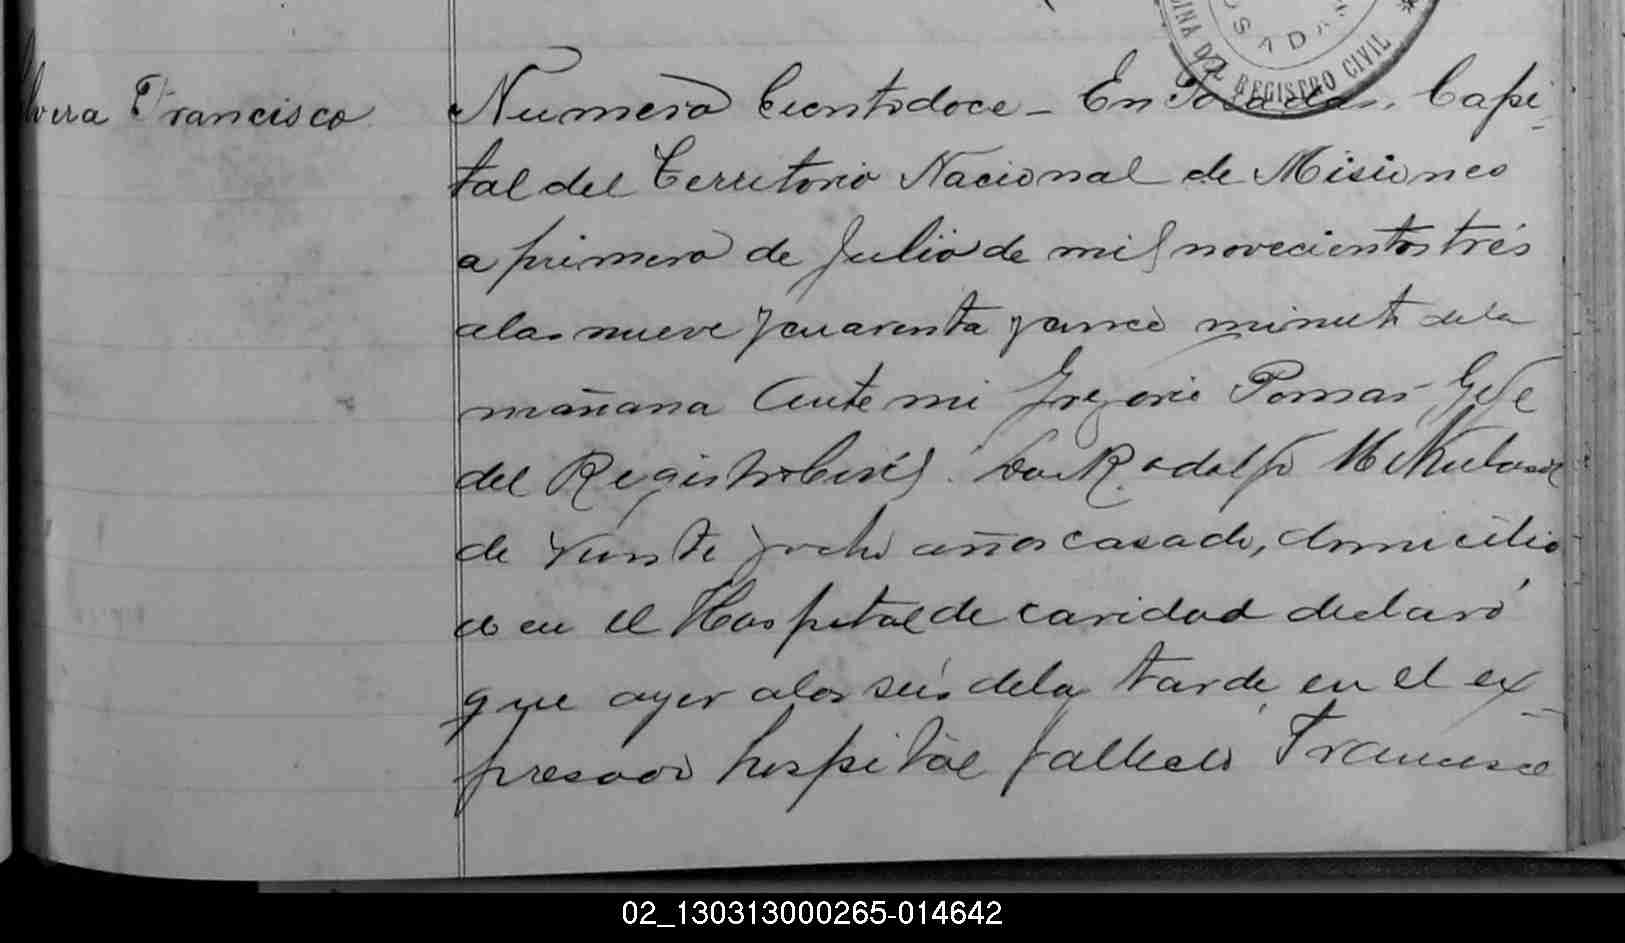 OFICINA DEL REGISTRO CIVIL
POSADAS
Francisco
Numero Ciento doce - En Posadas, Capi-
tal del Territorio Nacional de Misiones
a primero de Julio de mil novecientos trés
a las nueve y cuarenta y cinco minuts de la
mañana Ante mi Gregorio Pomar Gefe
del Registro Civil. Don Rodolfo
de veinte y ocho años casado, domicilia
do en el Hospital de caridad declaró
que ayer a las seis de la tarde, en el ex-
presado hospital fallecio Francisco
02_130313000265-014642